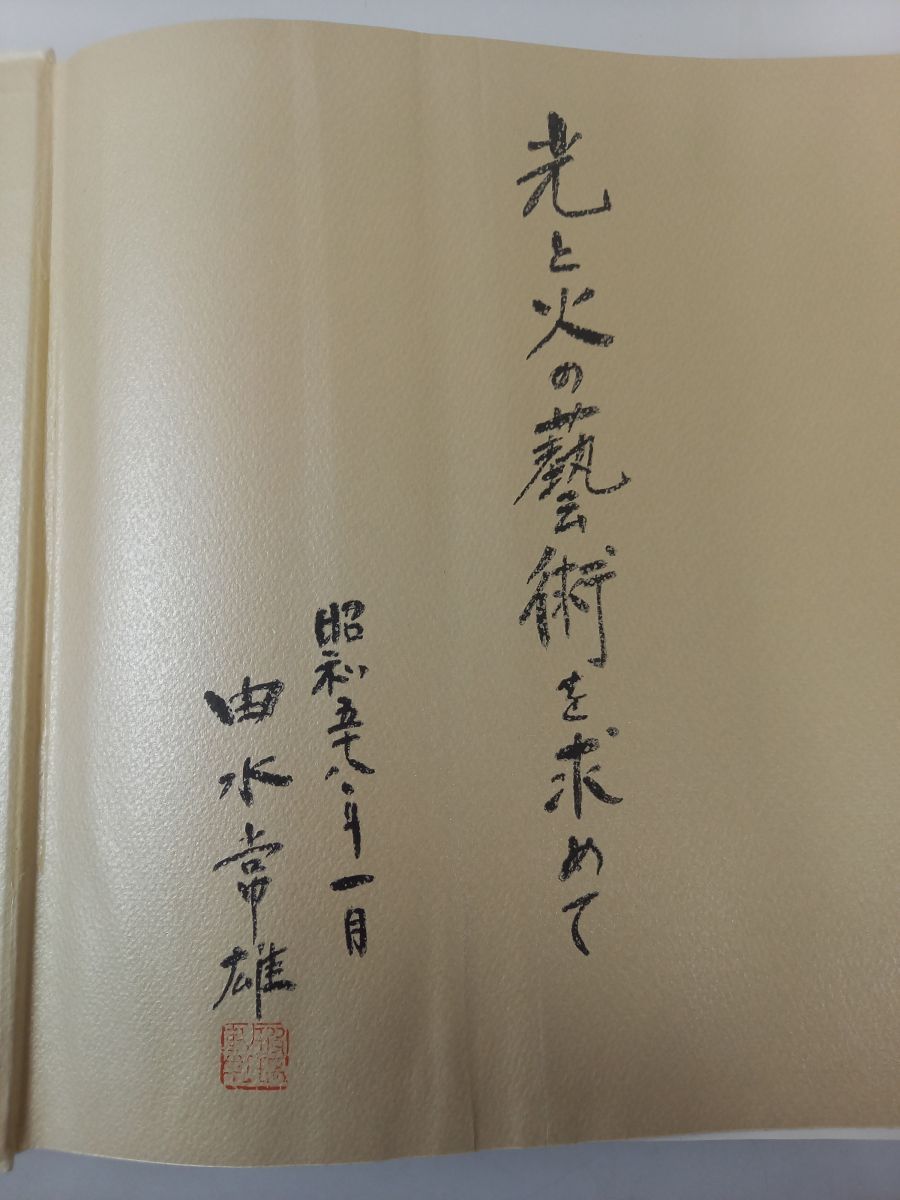 光と火の藝術を求めて
昭和五十八年一月
由水常雄